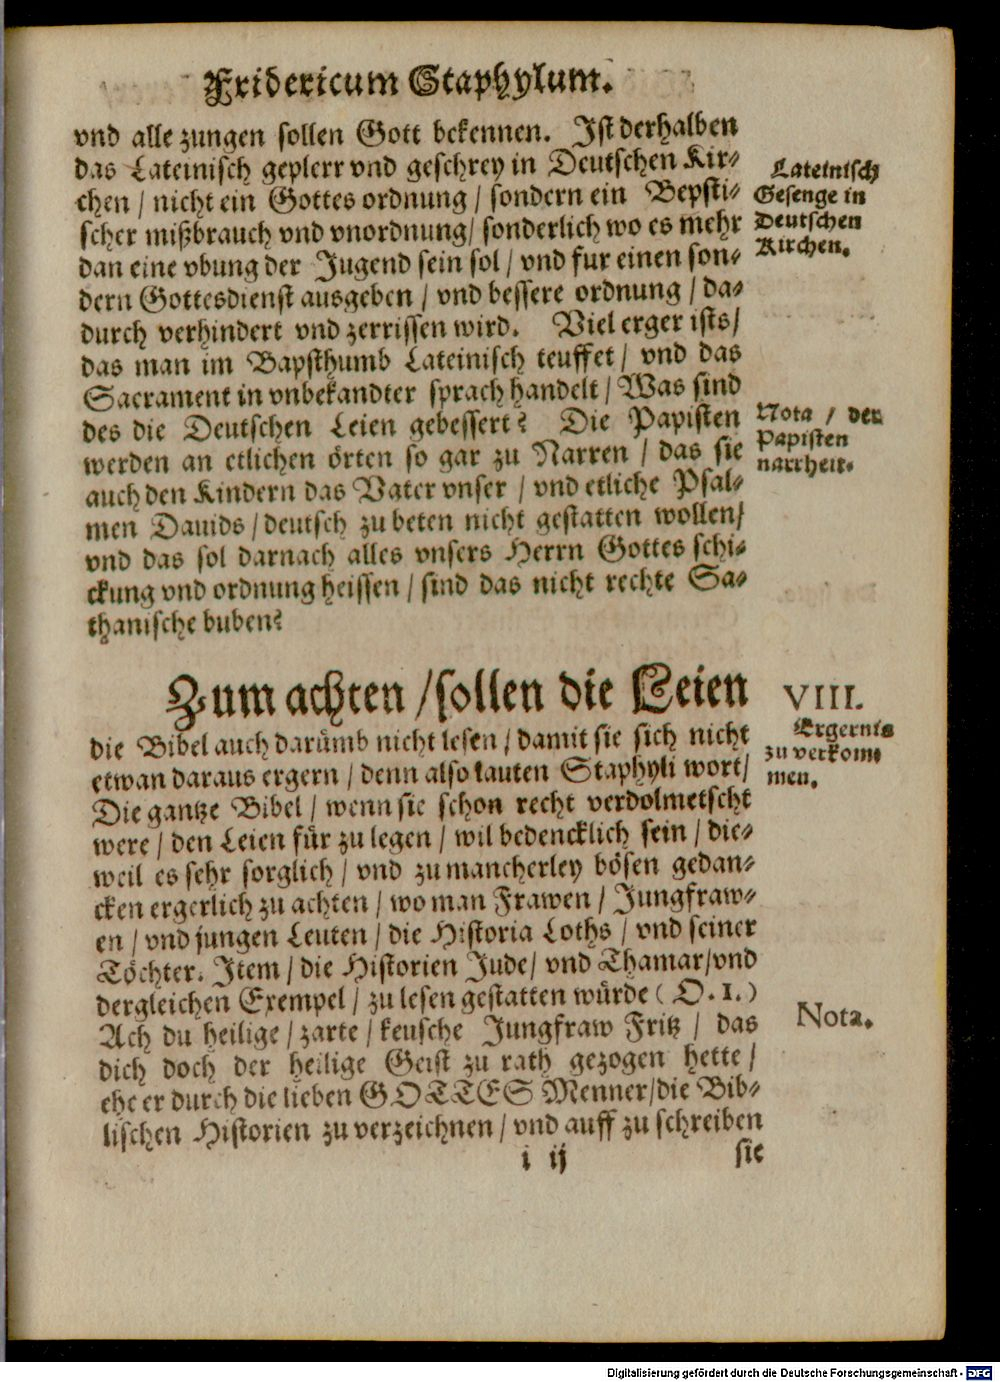 Fridericum Staphylum.
vnd alle zungen sollen Gott bekennen. Ist derhalben
das Lateinisch geplerr vnd geschrey in Deutschen Kir-
chen / nicht ein Gottes ordnung / sondern ein Bepsti-
scher mißbrauch vnd vnordnung / sonderlich wo es mehr
dan eine vbung der Jugend sein sol / vnd fur einen son-
dern Gottesdienst ausgeben / vnd bessere ordnung / da-
durch verhindert vnd zerrissen wird. Viel erger ists /
das man im Bapsthumb Lateinisch teuffet / vnd das
Sacrament in vnbekandter sprach handelt / Was sind
des die Deutschen Leien gebessert? Die Papisten
werden an etlichen örten so gar zu Narren / das sie
auch den Kindern das Vater vnser / vnd etliche Psal-
men Dauids / deutsch zu beten nicht gestatten wollen /
vnd das sol darnach alles vnsers Herrn Gottes schi-
ckung vnd ordnung heissen / sind das nicht rechte Sa-
thanische buben?
Lateinisch
Gesenge in
Deutschen
Kirchen.
Nota / der
Papisten
narrheit.
Zum achten / sollen die Leien
die Bibel auch darümb nicht lesen / damit sie sich nicht
etwan daraus ergern / denn also lauten Staphyli wort /
Die gantze Bibel / wenn sie schon recht verdolmetscht
were / den Leien für zu legen / wil bedencklich sein / die-
weil es sehr sorglich / vnd zu mancherley bösen gedan-
cken ergerlich zu achten / wo man Frawen / Jungfraw-
en / vnd jungen Leuten / die Historia Loths / vnd seiner
Töchter. Item / die Historien Jude / vnd Thamar / vnd
dergleichen Exempel / zu lesen gestatten würde ( O. 1. )
Ach du heilige / zarte / keusche Jungfraw Fritz / das
dich doch der heilige Geist zu rath gezogen hette /
ehe er durch die lieben GOTTES Menner / die Bib-
lischen Historien zu verzeichnen / vnd auff zu schreiben
VIII.
Ergernis
zu verkom-
men.
Nota.
i ij
sie
Digitalisierung gefördert durch die Deutsche Forschungsgemeinschaft - DFG